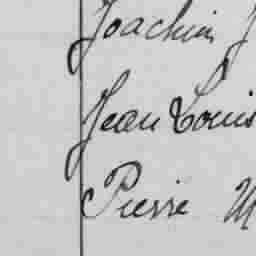 Joachim J
Jean Louis
Pierre M